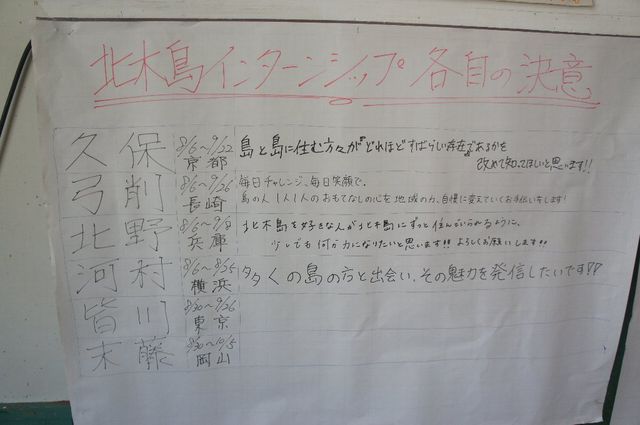 北木島インターンシップ 各自の決意
久保 8/6〜9/22 京都 島と島に住む方々がどれほどすばらしい存在であるかを
改めて知ってほしいと思います!!
弓削 8/6〜9/26 長崎 毎日チャレンジ、毎日笑顔で。
島の人1人1人のおもてなしの心を地域の力、自慢に変えていくお手伝いをします!
北野 8/6〜9/8 兵庫 北木島を好きな人が北木島にずっと住んでいられるように、
少しでも何か力になりたいと思います!! よろしくお願いします!!
河村 8/6〜9/25 横浜 多くの島の方と出会い、その魅力を発信したいです!!
皆川 8/30〜9/26 東京
末藤 8/30〜10/5 岡山